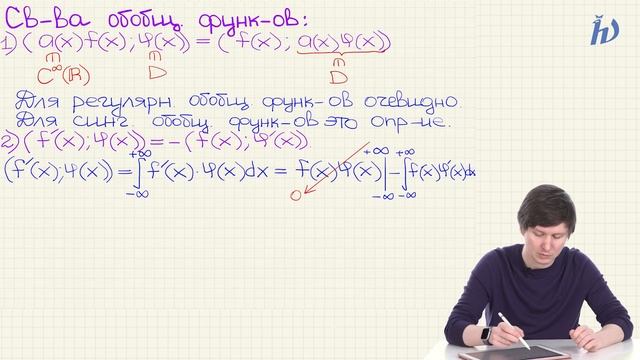 Св-ва обобщ. функ-ов:
1) (a(x)f(x); φ(x)) = (f(x); a(x)φ(x))
∈ ∈ ∈
C^∞(ℝ) D D
Для регулярн. обобщ. функ-ов очевидно.
Для синг. обобщ. функ-ов это опр-ие.
2) (f'(x); φ(x)) = -(f(x); φ'(x)).
(f'(x); φ(x)) = ∫_{-∞}^{+∞} f'(x)·φ(x)dx = f(x)φ(x)|_{-∞}^{+∞} - ∫_{-∞}^{+∞} f(x)φ'(x)dx
0